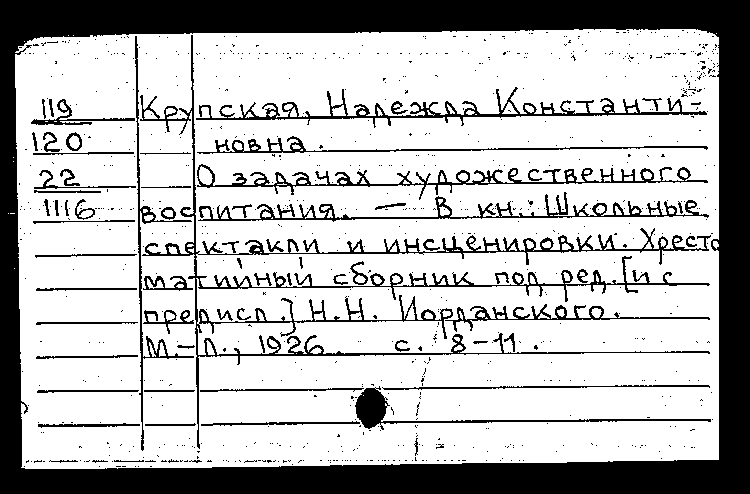 119 Крупская, Надежда Константи-
120 новна.
22 О задачах художественного
1116 воспитания. — В кн.: Школьные
спектакли и инсценировки. Хресто
матийный сборник под ред. [и с
предисл.] Н.Н. Иорданского.
М.-Л., 1926. с. 8-11.